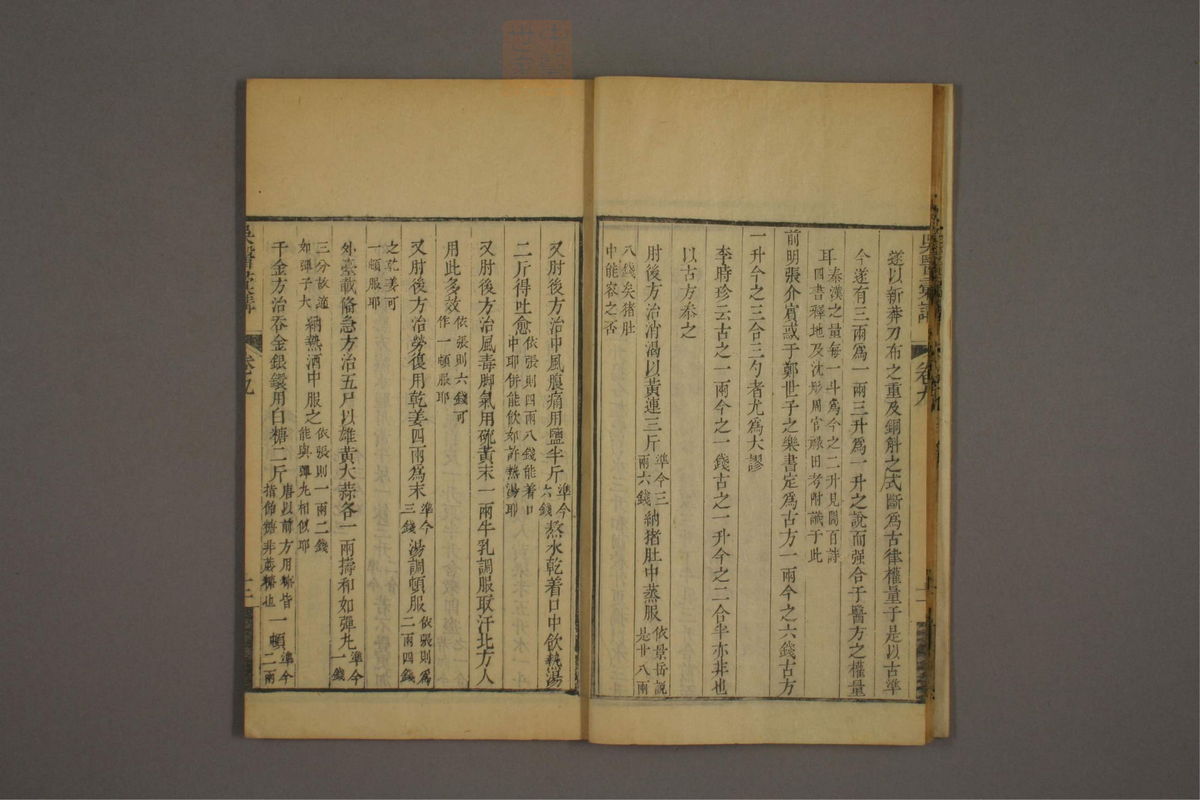 遂以新莽刀布之重及銅斛之式斷爲古律權量于是以古準
今遂有三兩爲一兩三升爲一升之說而强合于醫方之權量
耳秦漢之量每一斗爲今之二升見閻百詩四書釋地及沈彤周官祿田考附識于此
前明張介賓惑于鄭世子之樂書定爲古方一兩今之六錢古方
一升今之三合三勺者尤爲大謬
李時珍云古之一兩今之一錢古之一升今之二合半亦非也
以古方叅之
肘後方治消渴以黃連三斤準今三兩六錢納猪肚中蒸服依景岳說是廿八兩
八錢矣猪肚中能容之否
又肘後方治中風腹痛用鹽半斤準今六錢熬水乾着口中飲熱湯
二斤得吐愈依張則四兩八錢能着口中耶併能飲如許熱湯耶
又肘後方治風毒脚氣用硫黃末一兩牛乳調服取汗北方人
用此多效依張則六錢可作一頓服耶
又肘後方治勞復用乾姜四兩爲末準今三錢湯調頓服依張則爲二兩四錢
之乾姜可一頓服耶
外臺載備急方治五尸以雄黃大蒜各一兩擣和如彈丸準今一錢
三分故適如彈子大納熱酒中服之依張則一兩二錢能與彈丸相似耶
千金方治吞金銀鐶用白糖二斤唐以前方用糖皆指飴糖非蔗糖也一頓準今二兩
卷九
卷九